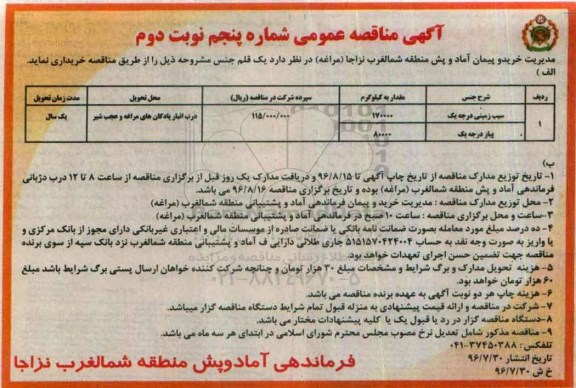 آگهی مناقصه عمومی شماره پنجم نوبت دوم
مدیریت خریدو پیمان آماد و پش منطقه شمالغرب نزاجا (مراغه) در نظر دارد یک قلم جنس مشروحه ذیل را از طریق مناقصه خریداری نماید.
الف )
ردیف شرح جنس مقدار به کیلوگرم سپرده شرکت در مناقصه (ریال) محل تحویل مدت زمان تحویل
۱ سیب زمینی درجه یک ۱۷۰۰۰۰ ۱۱۵/۰۰۰/۰۰۰ درب انبار یادگان های مراغه و عجب شیر یک سال
پیاز درجه یک ۸۰۰۰۰
ب)
۱- تاریخ توزیع مدارک مناقصه از تاریخ چاپ آگهی تا ۹۶/۸/۱۵ و دریافت مدارک یک روز قبل از برگزاری مناقصه از ساعت ۸ تا ۱۲ درب دژبانی
فرماندهی آماد و پش منطقه شمالغرب (مراغه) بوده و تاریخ برگزاری مناقصه ۹۶/۸/۱۶ می باشد.
۲- محل توزیع مدارک مناقصه : مدیریت خرید و پیمان فرماندهی آماد و پشتیبانی منطقه شمالغرب (مراغه)
۳-ساعت و محل برگزاری مناقصه : ساعت ۱۰ صبح در فرماندهی آماد و پشتیبانی منطقه شمالغرب (مراغه)
۴- ده درصد مبلغ مورد معامله بصورت ضمانت نامه بانکی یا ضمانت صادره از موسسات مالی و اعتباری غیربانکی دارای مجوز از بانک مرکزی و
یا واریز به صورت وجه نقد به حساب ۵۱۵۱۵۷۰۴۲۴۰۰۴ جاری طلائی دارایی ف آماد و پشتیبانی منطقه شمالغرب نزد بانک سپه از سوی برنده
مناقصه جهت تضمین حسن اجرای تعهدات خواهد بود.
۵- هزینه تحویل مدارک و برگ شرایط و مشخصات مبلغ ۳۰ هزار تومان و چنانچه شرکت کننده خواهان ارسال پستی برگ شرایط باشد مبلغ
۶۰ هزار تومان خواهد بود.
۶- هزینه چاپ هر دو نوبت آگهی به عهده برنده مناقصه می باشد.
۷- شرکت در مناقصه و ارائه قیمت پیشنهادی به منزله قبول تمام شرایط دستگاه مناقصه گزار میباشد.
۸-دستگاه مناقصه گزار در رد یا قبول یک یا کلیه پیشنهادات مختار می باشد.
۹- مناقصه مذکور شامل تعدیل نرخ مصوب مجلس محترم شورای اسلامی در ابتدای هر سه ماه می باشد.
تلفکس : ۳۷۴۵۰۳۸۸-۰۴۱
تاریخ انتشار ۹۶/۷/۳۰
خ ش ۹۶/۷/۳۰
فرماندهی آمادوپش منطقه شمالغرب نزاجا